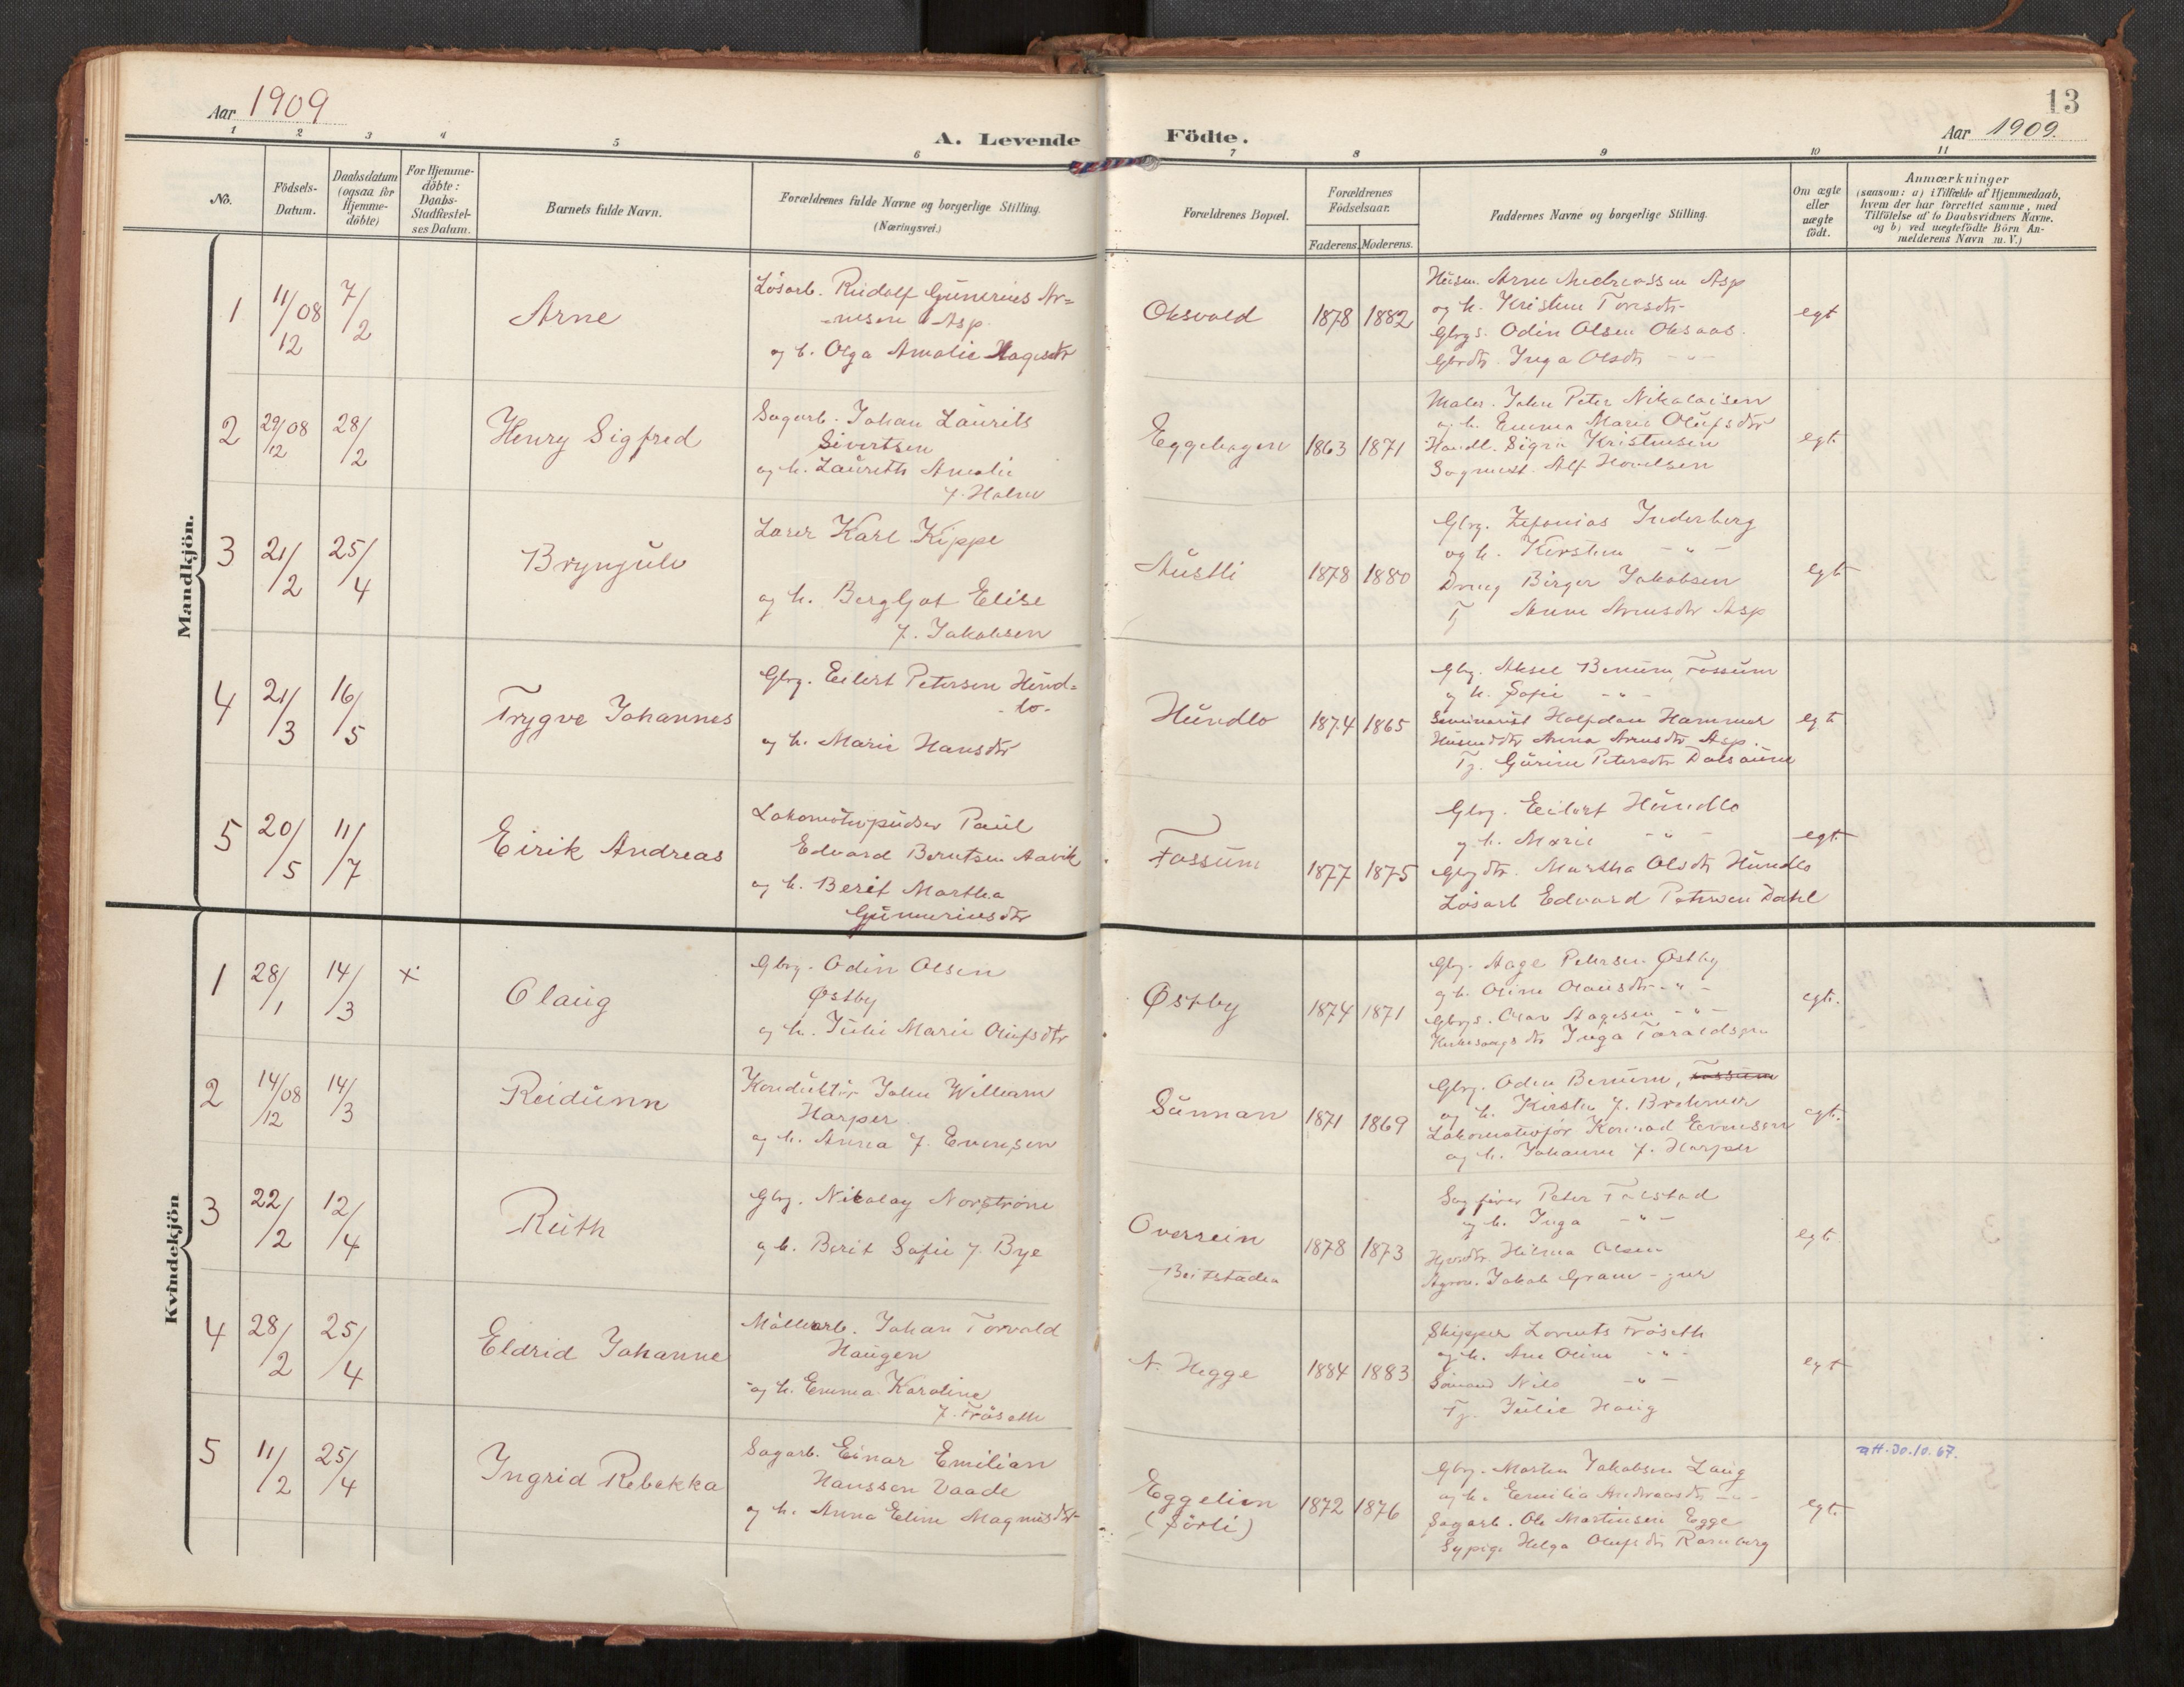 13
Aar 1909
A. Levende Födte.
Aar 1909.
1 2 3 4 5 6 7 8 9 10 11
No.
Födsels-Datum.
Daabsdatum (ogsaa for Hjemme-döbte)
For Hjemme-döbte: Daabs-Stadfæstel-ses Datum.
Barnets fulde Navn.
Forældrenes fulde Navne og borgerlige Stilling. (Næringsvei.)
Forældrenes Bopæl.
Forældrenes Födselsaar.
Faderens. Moderens.
Faddernes Navne og borgerlige Stilling.
Om ægte eller uægte födt.
Anmærkninger
(saasom: a) i Tilfælde af Hjemmedaab,
hvem der har forrettet samme, med
Tilföielse af to Daabsvidners Navne.
og b) ved uægtefödte Börn An-
melderens Navn m. V.)
Mandkjön.
1 11/12 08 7/2 Arne
Løsarb. Rudolf Gunerius Ar=
-nesen Asp.
og h. Olga Amalie
Oksvold 1878 1882
Husm. Arne Andreassen Asp
og h. Kristine Toresdtr
Gbrgs. Odin Olsen Oksaas.
Gbrdtr. Inga Olsdtr -"-
egt
2 29/12 08 28/2 Henry Sigfred
Sagarb. Johan Laurits
Sivertsen
og h. Lauritte Amalie
f. Holm
Eggehagen 1863 1871
Maler. John Peter Nikolaisen
og h. Emma Marie Olufsdtr
Handl. Sigrin Kristensen
Sagmest. Alf Havelsen
egt.
3 21/2 25/4 Brynjulv
Lærer Karl Kippe
og h. Bergljot Elise
f. Jakobsen
Austli 1878 1880
Gbrg. Zefanias Inderberg
og h. Kirsten -"-
Dreng Birger Jakobsen
Tj Anne Arnesdtr Asp
egt
4 21/3 16/5 Trygve Johannes
Gbrg. Eilert Petersen Hund=
-lo-
og h. Marie Hansdtr
Hundlo 1874 1865
Gbrg. Aksel Benum, Fossum
og h. Sofie -"-
Seminarist Halfdan Hammer
Husmdtr Anna Arnesdtr Asp.
Tj. Gurine Petersdtr Dalsaune
egt
5 20/5 11/7 Eirik Andreas
Lokomotivpudser Paul
Edvard Berntsen Aavik
og h. Berit Martha
Gunneriusdtr
Fossum 1877 1875
Gbrg. Eilert Hundlo
og h. Marie -"-
Gbrgdtr. Martha Olsdtr Hundlo
Løsarb Edvard Petersen Dahl
egt.
Kvindekjön
1 28/1 14/3 x Olaug
Gbrg. Odin Olsen
Østby
og h. Julie Marie Olufsdtr
Østby 1874 1871
Gbrg. Aage Petersen Østby
og h. Oline Olausdtr -"-
Gbrgs. Olav Aagesen -"-
Kirkesangsdtr Inga Taraldsen
egt.
2 14/12 08 14/3 Reidunn
Konduktör John William
Harper
og h. Anna f. Evensen
Sunnan 1871 1869
Gbrg. Oden Benum, Fossum
og h. Kirsten f. Brehmer
Lokomotivför Konrad Evensen
og h. Johanne f. Harper
egt.
3 22/2 12/4 Ruth
Gbrg. Nikolay Norström
og h. Berit Sofie f. Bye
Overrein
Beitstaden
1878 1873
Sagfører Peter Folstad
og h. Inga -"-
Hilma Olsen
Agron. Jakob Gram
egt.
4 28/2 25/4 Eldrid Johanne
Möllearb. Johan Torvald
Haugen
og h. Emma Karoline
f. Fröseth
N. Hegge 1884 1883
Skipper Lorents Fröseth
og h. Ane Oline -"-
Sömand Nils -"-
Tj. Julie Haug
egt
5 11/2 25/4 Ingrid Rebekka
Sagarb. Einar Emilian
Hanssen Vaade
og h. Anna Eline Magnusdtr
Eggelien
(Sörli)
1872 1876
Gbrg. Martin Jakobsen Laug
og h. Emilia Andreasdtr -"-
Sagarb. Ole Martinsen Egge
Sypige Helga Olufsdtr Ramberg
egt.
att. 30.10.67.